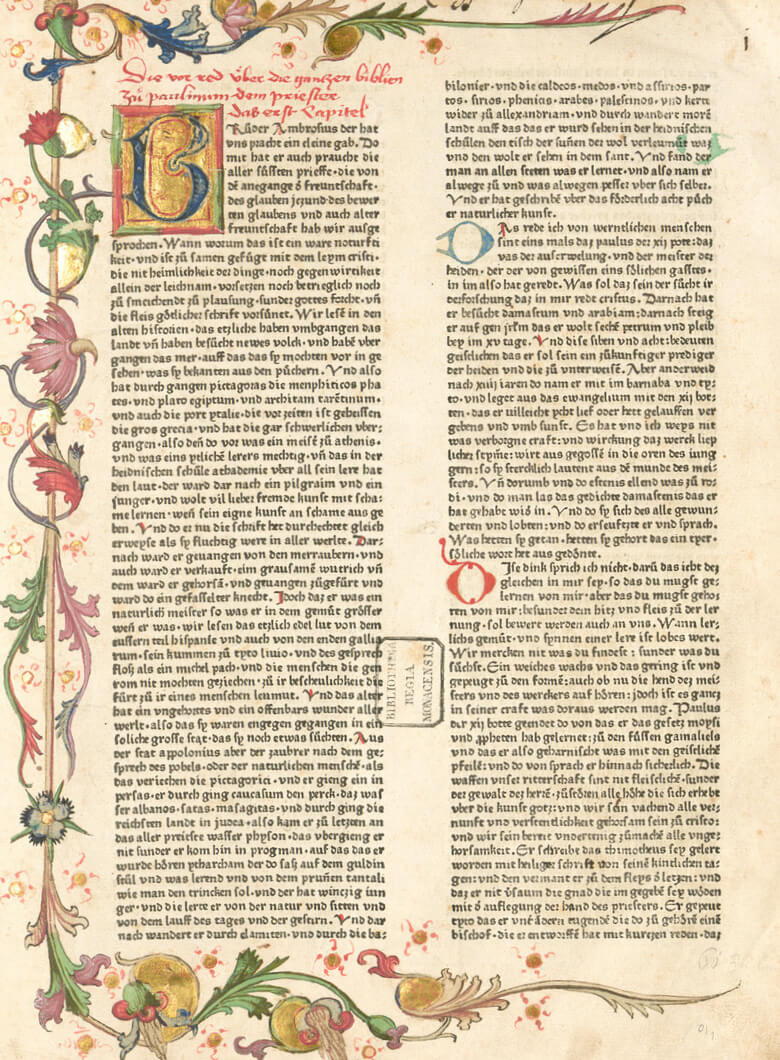 Die vor red über die gantzen biblien
zů paulinum dem priester
das erst Capitel
BRůder Ambrosius der hat
vns pracht ein cleine gab. Do
mit hat er auch praucht die
aller süssten prieffe·die von
dē anegange ð freuntschaft·
des glauben jezund des bewer
ten glaubens vnd auch alter
freuntschaft hab wir ausge
sprochen. Wann worum das ist ein ware noturfti
keit·vnd ist zů samen gefügt mit dem leym cristi·
die nit heimlicheit der dinge·noch gegenwirtikeit
allein der leichnam·vorsozen noch betrieglich noch
zů smeichendt zů plausung·sunder gottes forcht·vñ
die fleis götlicher schrift vorsůnet. Wir lesē in den
alten historien·das etzliche haben vmbgangen das
landt vñ haben besůcht newes volck·vnd habē vber
gangen das mer·auff das das sy mochten vor in ge
sehen·was sy bekanten aus den půchern. Vnd also
hat durch gangen pictagoras die menphiticos pha
tes·vnd plato egiptum·vnd architam tarētinum·
vnd auch die port ytalie·die vor zeiten ist geheissen
die gros grecia·vnd hat die gar schwerlichen vber
gangen·also deñ do vor was ein meist̄ zů athenis·
vnd was eins ytlichē lerers mechtig·vñ das in der
heidnischen schůle athademie vber all sein lere hat
den laut·der ward dar nach ein pilgraim vnd ein
junger·vnd wolt vil lieber fremde kunst mit scha
me lernen·wen sein eigne kunst an schame aus ge
ben. Vnd do er nu die schrift het durchechtet gleich
erweyse als sy fluchtig were in aller werlte. Dar
nach ward er geuangen von den merraubern·vnd
auch ward er verkauft·eim grausamē wutrich vñ
dem ward er gehorsā·vnd geuangen zůgefürt vnd
ward do ein gefasselter knecht. Idoch daz er was ein
natůrlich meister so was er in dem gemůt grösser
weñ er was·wir lesen das etzlich edel lut von dem
eussern teil hispanie vnd auch von den enden gallia
rum·sein kummen zů tyto liuio·vnd des gesprech
floß als ein milch pach·vnd die menschen die gen
rom nit mochten gezichen·zů ir bescheulicheit die
fürt zů ir eines menschen leumut. Vnd das alter
hat ein vngehortes vnd ein offenbars wunder aller
werlt·also das sy waren engegen gegangen in ein
soliche grosse stat·das sy noch etwas süchten. Aus
der stat appolonius aber der zaubrer nach dem ge
sprech des pobels·oder der naturlichen menschē·als
das veriechen die pictagorici·vnd er gieng ein in
persas·er durch ging caucasum den perck·daz waz
ser albanos·satas·masagitas·vnd durch ging die
reichsten landt in judea·also kam er zů letzten an
das aller preitste wasser physon·das vbergieng er
nit sunder er kom hin in progman·auf das das er
wurde hören ytharcham der do saß auf dem guldin
stůl vnd was lerend·vnd von dem prunen tantali
wie man den trincken sol·vnd der hat winczig iun
ger·vnd die lerte er von der natur vnd sitten vnd
von dem lauff des tages vnd der gestirn. Vnd dar
nach wandert er durch elamiten·vnd durch die ba
bilonier·vnd die caldeos·medos·vnd assirios·par
tos·sirios·phenicas·arabes·palestinos·vnd kert
wider zů allexandriam·vnd durch wandert morē
landt auff das das er wurd sehen in der heidnischen
schůlen den tisch der sunnen dez wol verleumūt waz
vnd den wolt er sehen in dem sant. Vnd fand der
man an allen steten was er lernet·vnd also nam er
alwege zů vnd was alwegen pesser vber sich selber.
Vnd er hat geschribē vber das fôrderlich acht pûch
er naturlicher kunst.
DAs rede ich von werntlichen menschen
sint eins mals daz paulus der xij pote·daz
vas der auserwelung·vnd der meister der
heiden·der der von gewissen eins sölichen gastes·
in im also hat geredt. Was sol daz sein der sücht ir
derforschung daz in mir rede cristus. Darnach hat
er besücht damascum vnd arabiam·darnach steig
er auf gen jrlm das er wolt sechē petrum vnd pleib
bey im xv tage. Vnd dise siben vnd acht·bedeuten
geistlichen das er sol sein ein zůkunftiger prediger
der heiden vnd die zů vnterweisē. Aber anderweid
nach xiiij iaren do nam er mit im barnaba vnd ty
to·vnd leget aus das ewangelium mit den xij bot
ten·das er villeicht ycht lief oder het gelauffen ver
gebens vnd vmb sunst. Es hat vnd ich weys nit
was verborgne craft·vnd wirckung daz werck liep
licher stym̄e·wirt aus gegossē in die oren des iung
gern·so sy sterchlich lautent aus dē munde des mei
sters. Vñ dorumb vnd do estenis ellend was zů ro
di·vnd do man las das gedichte damastenis das er
hat gehabt wid̄ in. Vnd do sy sich des alle gewun
derten vnd lobten·vnd do erseufczte er vnd sprach.
Was hetten sy getan·hetten sy gehort das ein tyer
söliche wort het aus gedönet.
DIse dink sprich ich nicht·darū das icht dez
gleichen in mir sey·so das du mugst ge
lernen von mir·aber das du mugst gehö
ren von mir·besunder dein hitz vnd fleis zů der ler
nung·sol bewert werden auch an vns. Wann ler
lichs gemūt·vnd synnen einer lere ist lobes wert.
Wir mercken nit was du findest·sunder was du
sůchst. Ein weiches wachs vnd das gering ist vnd
gepeugt zů den formē·auch ob nu die hend dez mei
sters vnd des werckers auf hören·jdoch ist es gancz
in seiner craft was doraus werden mag. Paulus
der xij botte geendet do von das er das gesetz moysi
vnd ꝓpheten hab gelernet·zů den füssen gamaliels
vnd das er also geharnischt was mit den geistlichē
pfeilē·vnd do von sprach er hinnach sicherlich. Die
waffen vnser ritterschaft sint nit fleischlich·sunder
der gewalt des herrē·zůstören alle höhe die sich erhebt
vber die kunst gotz·vnd wir san vachend alle ver
nunft vnd verstentlicheit gehorsam sein zů cristo·
vnd wir sein bereit vndertenig zůmachē alle vnge
horsamkeit. Er schreibt das thimotheus sey gelert
worden mit heiliger schrift von seinē kintlichen ta
gen·vnd den vermant er zů dem fleys ð letzen·vnd
daz er nit v̄saum die gnad die im gegebē sey wōden
mit ð auflegung der hand des priesters. Er gepeut
tyto das er vnt̄ andern tugendē die do zů gehōrē einē
bischof·die er entworffē hat mit kurczen reden·daz
BIBLIOTHECA
REGIA
MONACENSIS.